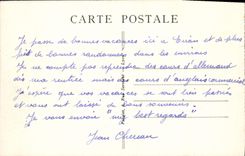 CARTE POSTALE
Je passe de bonnes vacances ici à et de plus
fait de bonnes randonnées dans les environs
Je ne compte pas reprendre des cours d'allemand
dès ma rentrée mais des cours d'anglais commercial
J'espère que vos vacances se sont bien passées
et vous ont laissé de bons souvenirs.
Je vous envoie "my best regards"
Jean